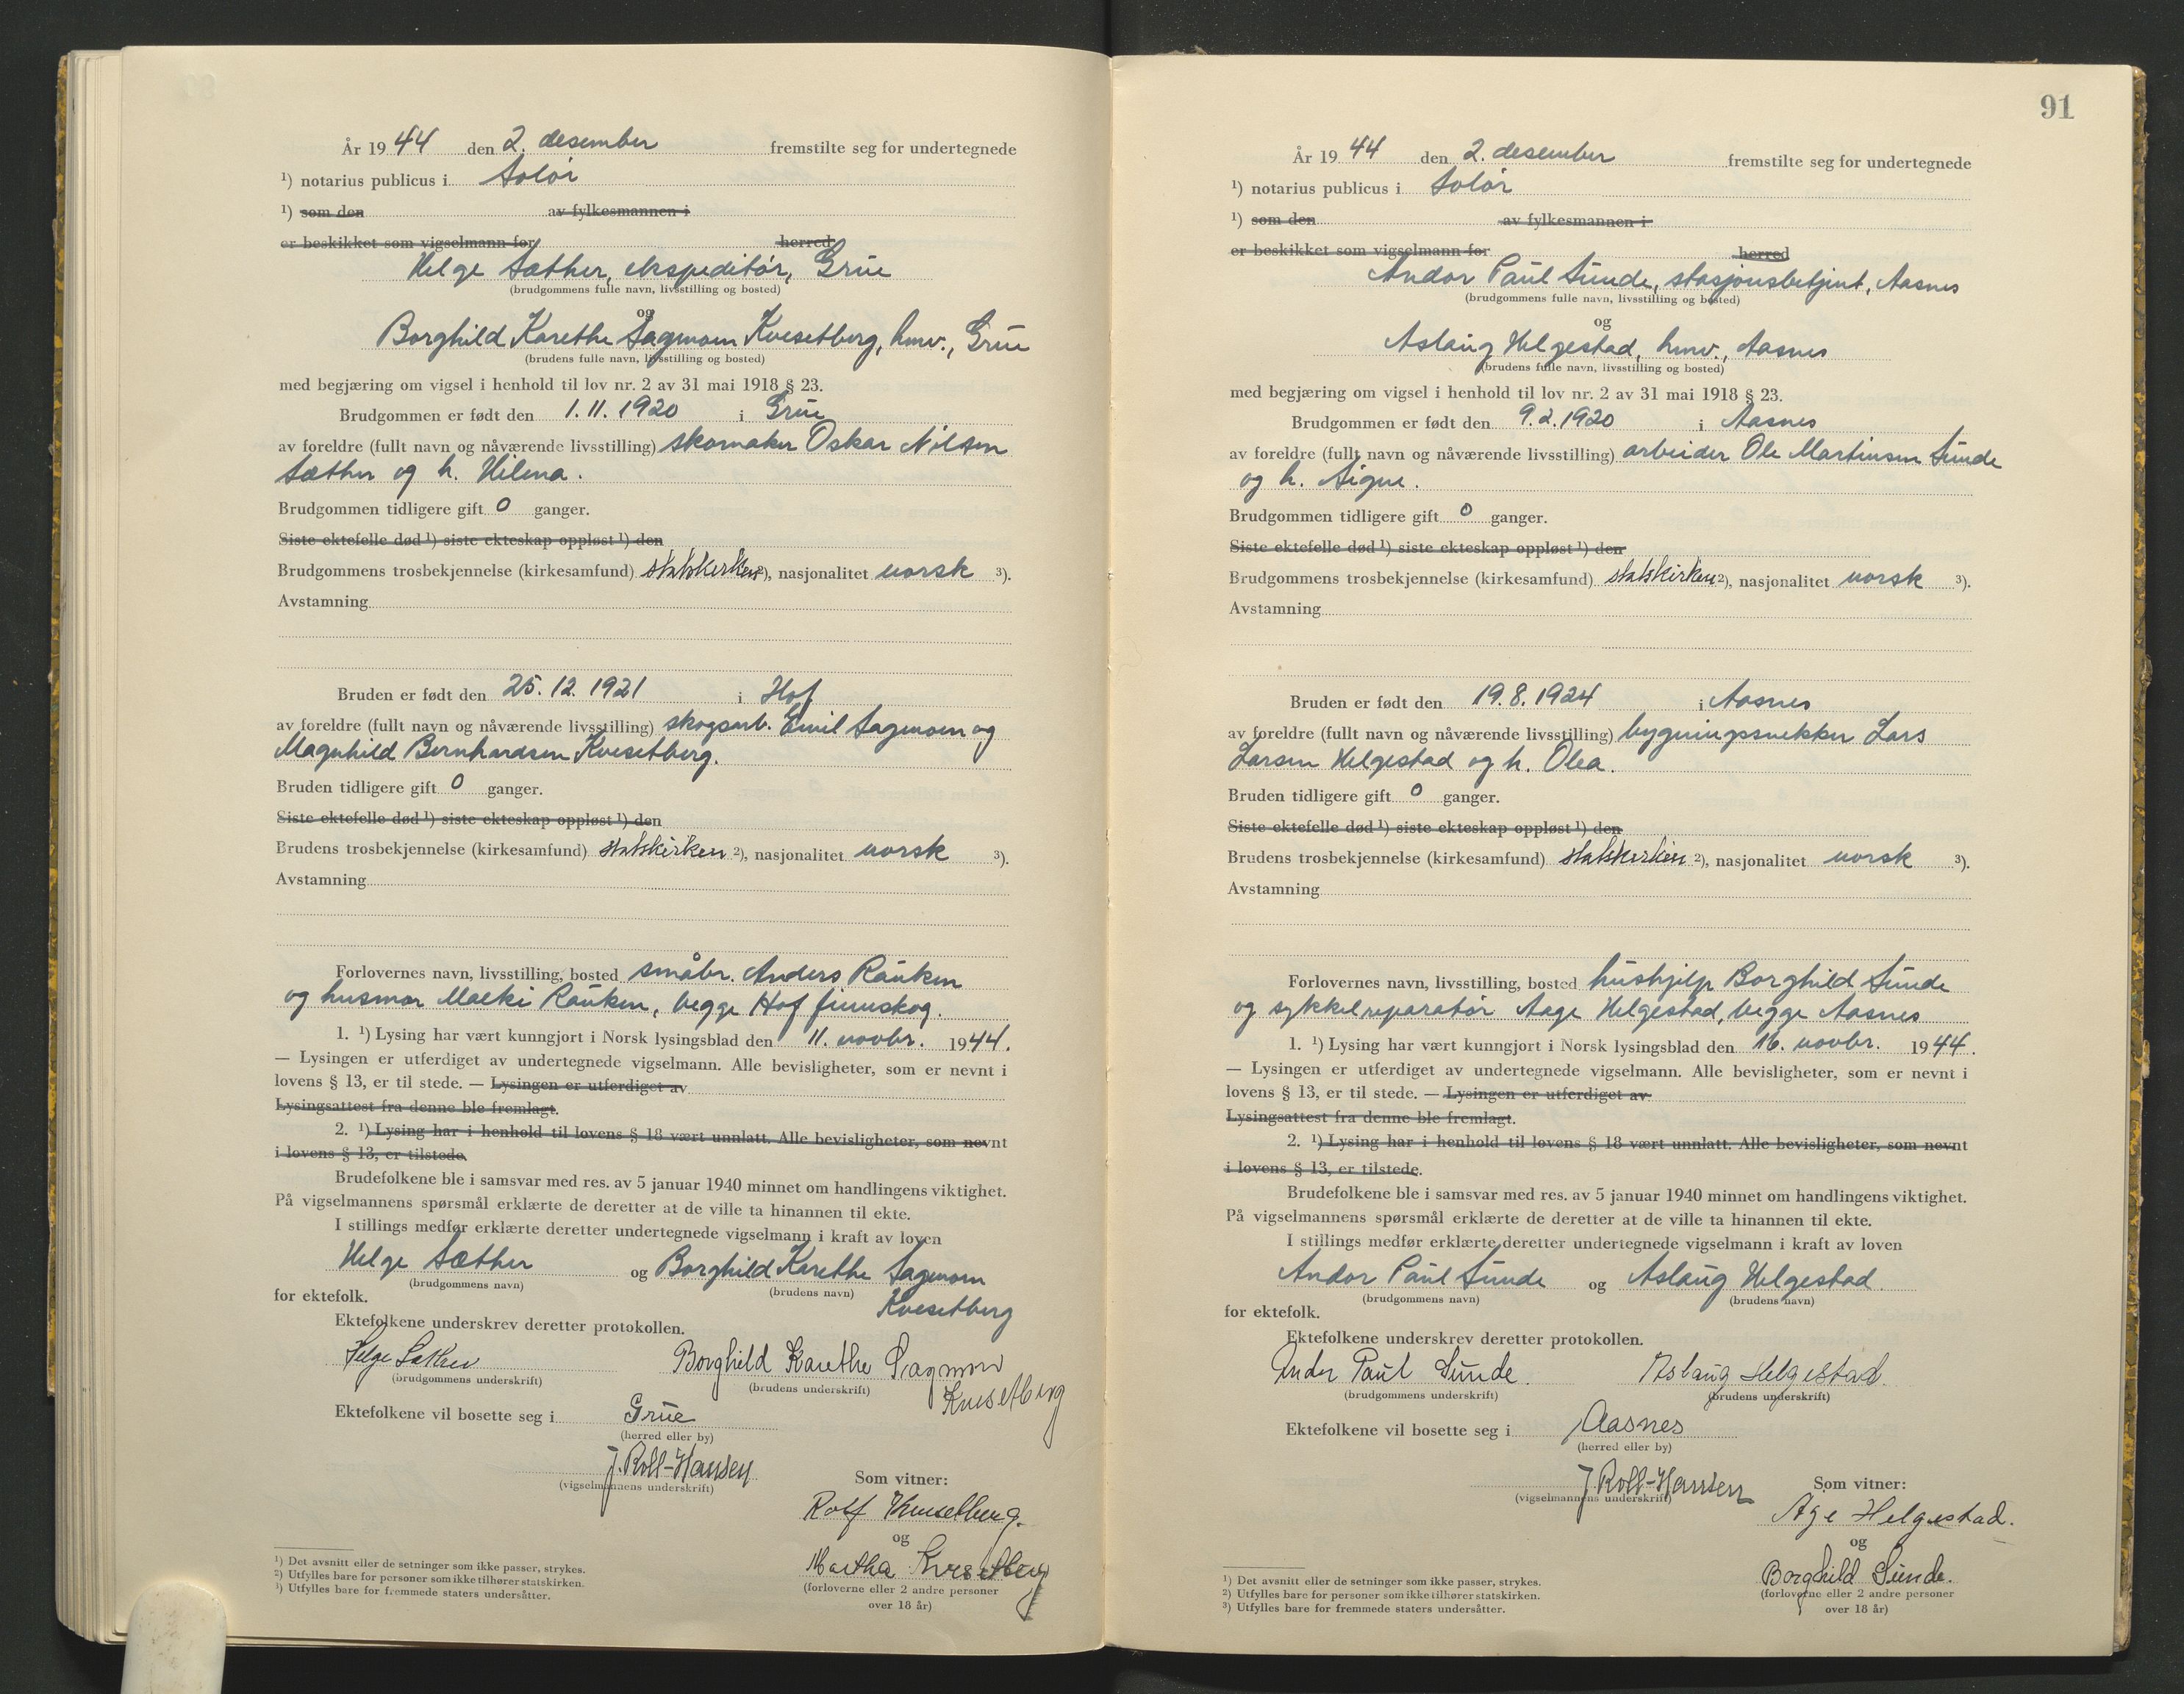 År 1944 den 2. desember fremstilte seg for undertegnede
¹) notarius publicus i Solør
¹) som den av fylkesmannen i
er beskikket som vigselmann for herred
Helge Sæther, ekspeditør, Grue
(brudgommens fulle navn, livsstilling og bosted)
og
Borghild Karethe Sagmoen Kvesetberg, hmv., Grue
(brudens fulle navn, livsstilling og bosted)
med begjæring om vigsel i henhold til lov nr. 2 av 31 mai 1918 § 23.
Brudgommen er født den 1.11.1920 i Grue
av foreldre (fullt navn og nåværende livsstilling) skomaker Oskar Nilsen
Sæther og h. Helena.
Brudgommen tidligere gift 0 ganger.
Siste ektefelle død ¹) siste ekteskap oppløst ¹) den
Brudgommens trosbekjennelse (kirkesamfund) statskirken ²), nasjonalitet norsk ³).
Avstamning
Bruden er født den 25.12.1921 i Hof
av foreldre (fullt navn og nåværende livsstilling) skogsarb. Emil Sagmoen og
Magnhild Bernhardsen Kvesetberg.
Bruden tidligere gift 0 ganger.
Siste ektefelle død ¹) siste ekteskap oppløst ¹) den
Brudens trosbekjennelse (kirkesamfund) statskirken ²), nasjonalitet norsk ³).
Avstamning
Forlovernes navn, livsstilling, bosted småbr. Anders Rauken
og husmor Maeki Rauken, begge Hof finnskog.
1. ¹) Lysing har vært kunngjort i Norsk lysingsblad den 11. novbr. 1944.
— Lysingen er utferdiget av undertegnede vigselmann. Alle bevisligheter, som er nevnt i
lovens § 13, er til stede. — Lysingen er utferdiget av
Lysingsattest fra denne ble fremlagt.
2. ¹) Lysing har i henhold til lovens § 18 vært unnlatt. Alle bevisligheter, som nevnt
i lovens § 13, er tilstede.
Brudefolkene ble i samsvar med res. av 5 januar 1940 minnet om handlingens viktighet.
På vigselmannens spørsmål erklærte de deretter at de ville ta hinannen til ekte.
I stillings medfør erklærte deretter undertegnede vigselmann i kraft av loven
Helge Sæther og Borghild Karethe Sagmoen
(brudgommens navn) (brudens navn)
Kvesetberg
for ektefolk.
Ektefolkene underskrev deretter protokollen.
Helge Sæther Borghild Karethe Sagmoen
(brudgommens underskrift) (brudens underskrift)
Kvesetberg
Ektefolkene vil bosette seg i Grue
(herred eller by)
J. Roll-Hansen
(vigselmannens underskrift)
Som vitner:
Rolf Kvesetberg.
og
Martha Kvesetberg
(forloverne eller 2 andre personer
over 18 år)
¹) Det avsnitt eller de setninger som ikke passer, strykes.
²) Utfylles bare for personer som ikke tilhører statskirken.
³) Utfylles bare for fremmede staters undersåtter.
91
År 1944 den 2. desember fremstilte seg for undertegnede
¹) notarius publicus i Solør
¹) som den av fylkesmannen i
er beskikket som vigselmann for herred
Andor Paul Sunde, stasjonsbetjent, Aasnes
(brudgommens fulle navn, livsstilling og bosted)
og
Aslaug Helgestad, hmv., Aasnes
(brudens fulle navn, livsstilling og bosted)
med begjæring om vigsel i henhold til lov nr. 2 av 31 mai 1918 § 23.
Brudgommen er født den 9.2.1920 i Aasnes
av foreldre (fullt navn og nåværende livsstilling) arbeider Ole Martinsen Sunde
og h. Signe.
Brudgommen tidligere gift 0 ganger.
Siste ektefelle død ¹) siste ekteskap oppløst ¹) den
Brudgommens trosbekjennelse (kirkesamfund) statskirken ²), nasjonalitet norsk ³).
Avstamning
Bruden er født den 19.8.1924 i Aasnes
av foreldre (fullt navn og nåværende livsstilling) bygningssnekker Lars
Larsen Helgestad og h. Olea.
Bruden tidligere gift 0 ganger.
Siste ektefelle død ¹) siste ekteskap oppløst ¹) den
Brudens trosbekjennelse (kirkesamfund) statskirken ²), nasjonalitet norsk ³).
Avstamning
Forlovernes navn, livsstilling, bosted hushjelp Borghild Sunde
og sykkelreparatør Aage Helgestad, begge Aasnes
1. ¹) Lysing har vært kunngjort i Norsk lysingsblad den 16. novbr. 1944.
— Lysingen er utferdiget av undertegnede vigselmann. Alle bevisligheter, som er nevnt i
lovens § 13, er til stede. — Lysingen er utferdiget av
Lysingsattest fra denne ble fremlagt.
2. ¹) Lysing har i henhold til lovens § 18 vært unnlatt. Alle bevisligheter, som nevnt
i lovens § 13, er tilstede.
Brudefolkene ble i samsvar med res. av 5 januar 1940 minnet om handlingens viktighet.
På vigselmannens spørsmål erklærte de deretter at de ville ta hinannen til ekte.
I stillings medfør erklærte deretter undertegnede vigselmann i kraft av loven
Andor Paul Sunde og Aslaug Helgestad.
(brudgommens navn) (brudens navn)
for ektefolk.
Ektefolkene underskrev deretter protokollen.
Andor Paul Sunde. Aslaug Helgestad.
(brudgommens underskrift) (brudens underskrift)
Ektefolkene vil bosette seg i Aasnes
(herred eller by)
J. Roll-Hansen
(vigselmannens underskrift)
Som vitner:
Age Helgestad.
og
Borghild Sunde.
(forloverne eller 2 andre personer
over 18 år)
¹) Det avsnitt eller de setninger som ikke passer, strykes.
²) Utfylles bare for personer som ikke tilhører statskirken.
³) Utfylles bare for fremmede staters undersåtter.